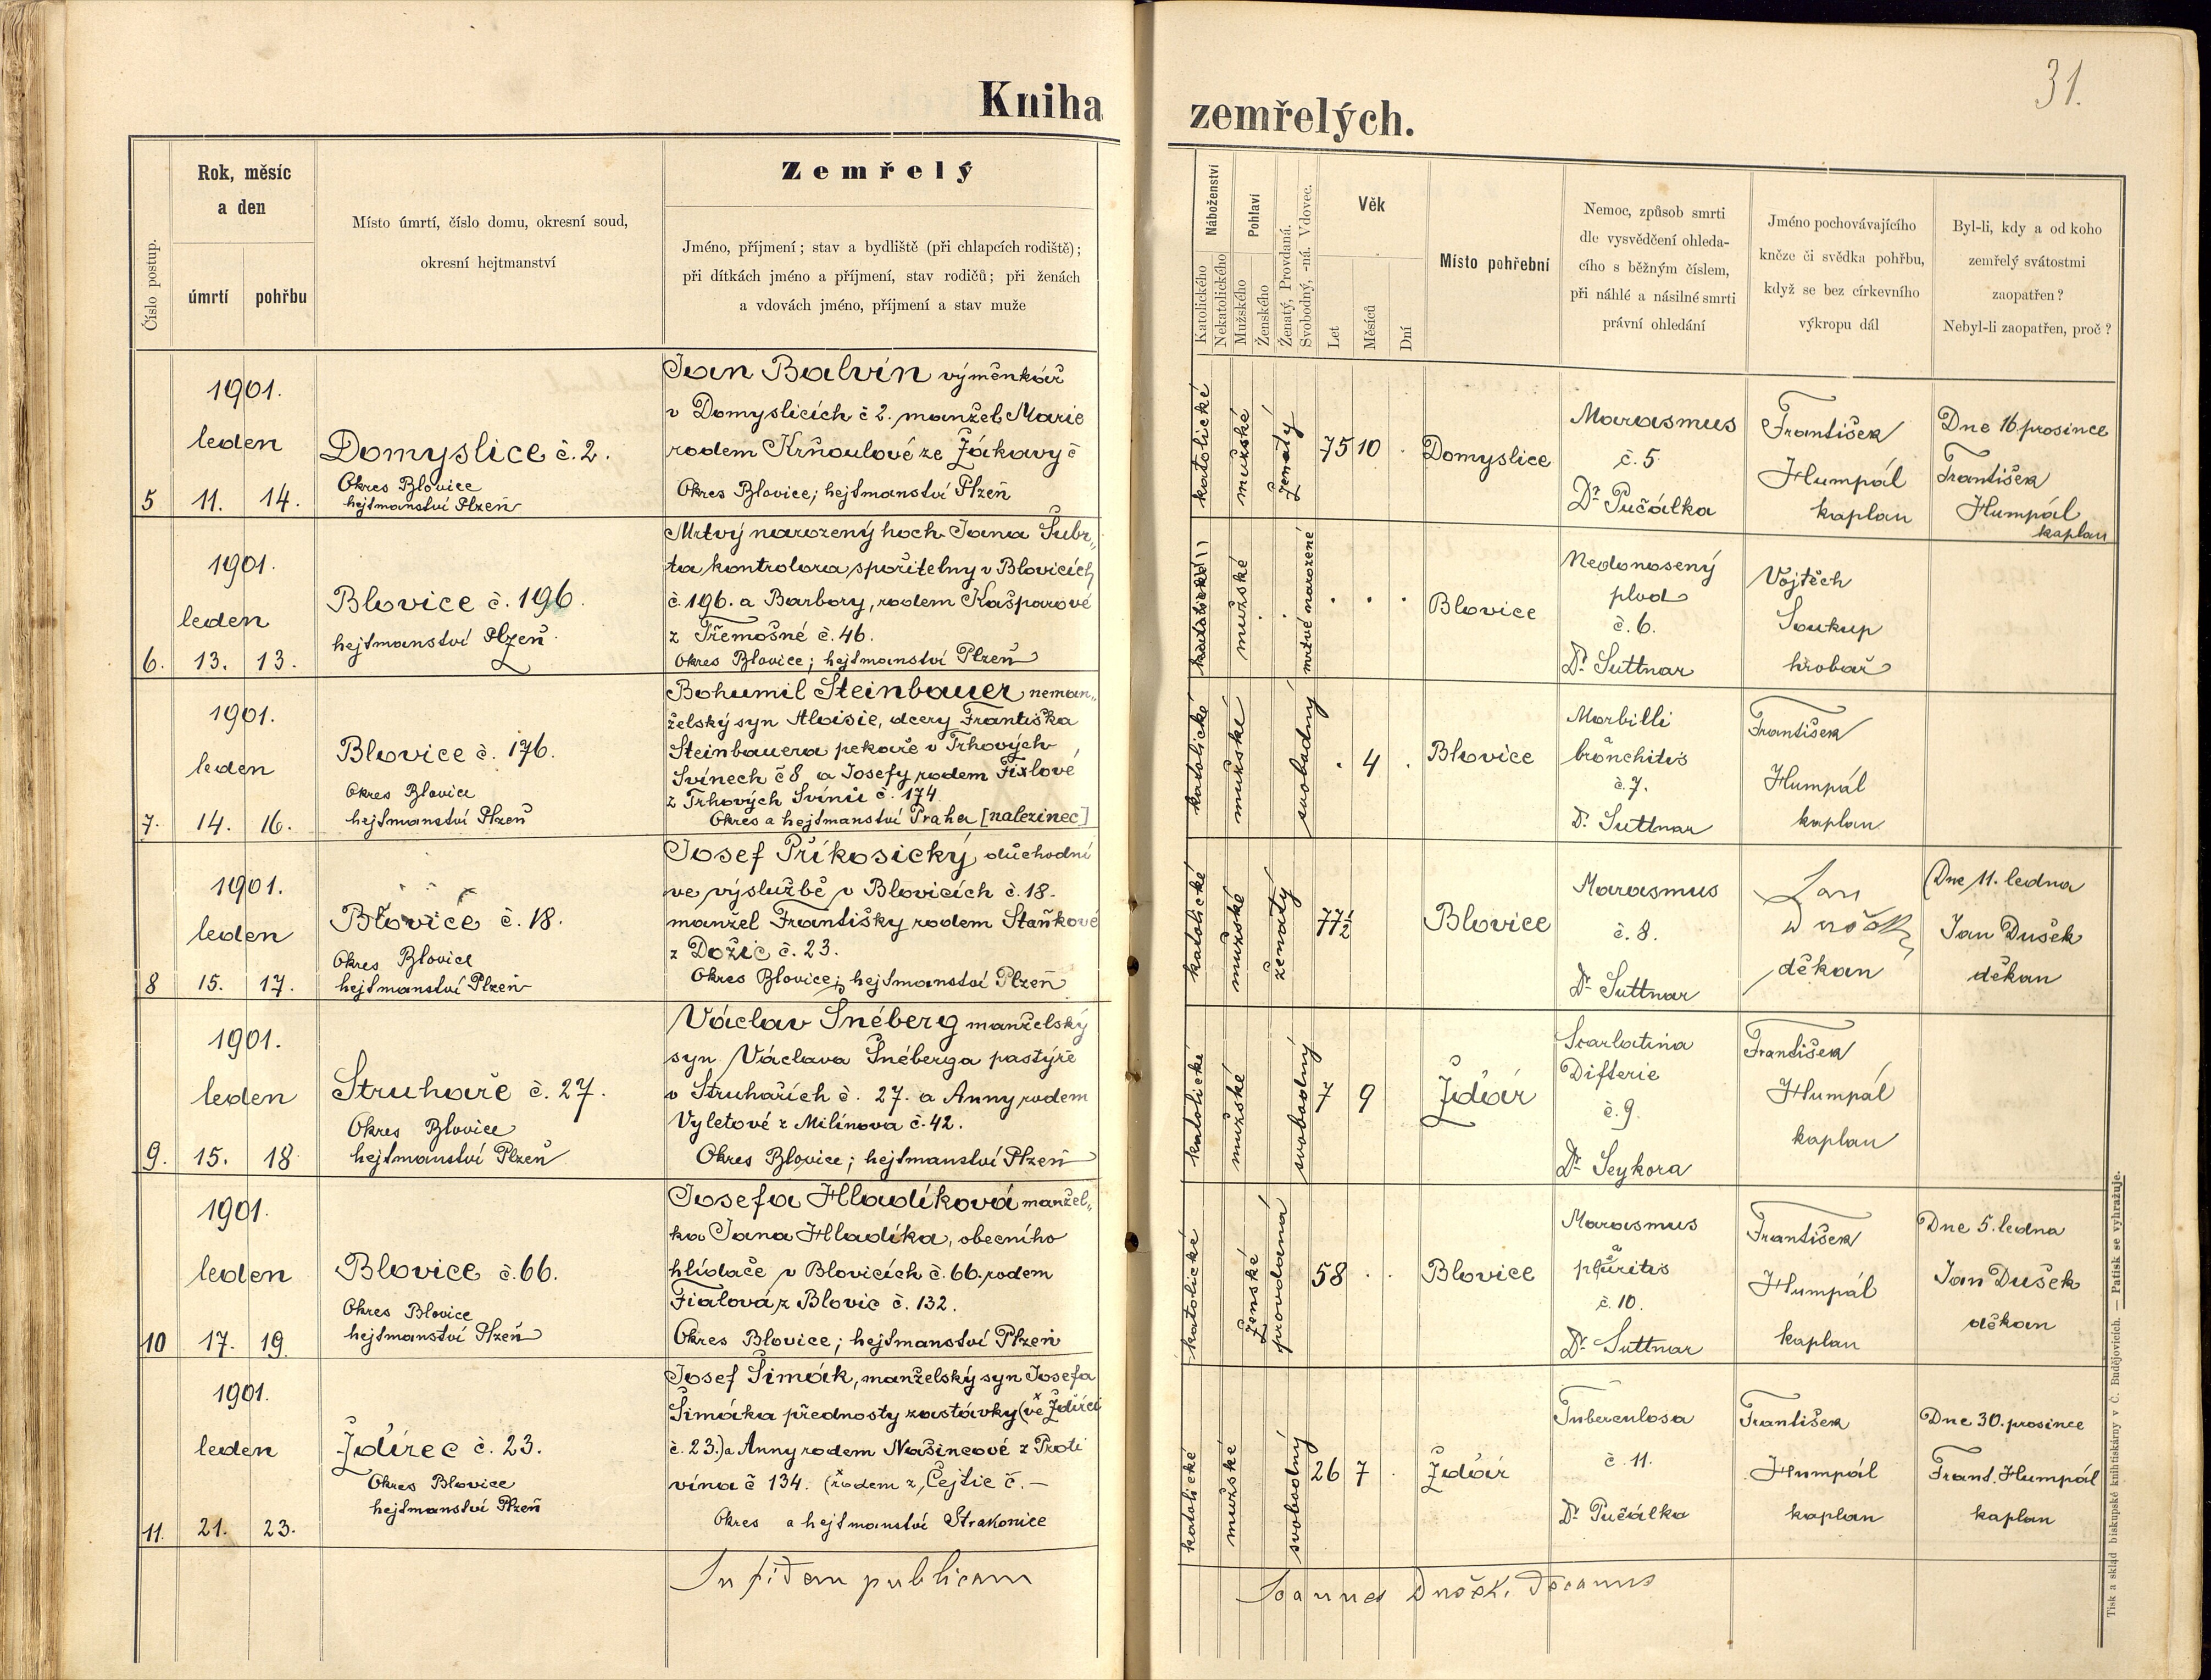 31.
Kniha zemřelých.
Číslo postup.
Rok, měsíc
a den
úmrtí
pohřbu
Místo úmrtí, číslo domu, okresní soud,
okresní hejtmanství
Zemřelý
Jméno, příjmení; stav a bydliště (při chlapcích rodiště);
při dítkách jméno a příjmení, stav rodičů; při ženách
a vdovách jméno, příjmení a stav muže
Náboženství
Katolického
Nekatolického
Pohlaví
Mužského
Ženského
Ženatý, Provdaná.
Svobodný, -ná. Vdovec.
Věk
Let
Měsíců
Dní
Místo pohřební
Nemoc, způsob smrti
dle vysvědčení ohleda-
cího s běžným číslem,
při náhlé a násilné smrti
právní ohledání
Jméno pochovávajícího
kněze či svědka pohřbu,
když se bez církevního
výkropu dál
Byl-li, kdy a od koho
zemřelý svátostmi
zaopatřen?
Nebyl-li zaopatřen, proč?
5
1901.
leden
11. 14.
Domyslice č. 2.
Okres Blovice
hejtmanství Plzeň
Jan Balvín výměnkář
v Domyslicích č 2. manžel Marie
rodem Krňoulové ze Žákavy č
Okres Blovice; hejtmanství Plzeň
katolické
mužské
ženatý
75 10 .
Domyslice
Marasmus
č. 5
Dr. Pučálka
František
Humpál
kaplan
Dne 16 prosince
František
Humpál
kaplan
6.
1901.
leden
13. 13.
Blovice č. 196.
hejtmanství Plzeň
Mrtvý narozený hoch Jana Šubr„
ta kontrolora spořitelny v Blovicích
č. 196. a Barbory, rodem Kašparové
z Třemošné č. 46.
Okres Blovice; hejtmanství Plzeň
katolické
mužské
mrtvě narozené
. . .
Blovice
Nedonosený
plod
č. 6.
Dr. Suttnar
Vojtěch
Soukup
hrobař
7.
1901.
leden
14. 16.
Blovice č. 176.
Okres Blovice
hejtmanství Plzeň
Bohumil Steinbauer neman„
želský syn Aloisie, dcery Františka
Steinbauera pekaře v Trhových
Svínech č 8 a Josefy rodem Fixlové
z Trhových Svínů č. 174
Okres a hejtmanství Praha [nalezinec]
katolické
mužské
svobodný
. 4 .
Blovice
Morbilli
bronchitis
č. 7.
Dr. Suttnar
František
Humpál
kaplan
8
1901.
leden
15. 17.
Blovice č. 18.
Okres Blovice
hejtmanství Plzeň
Josef Příkosický důchodní
ve výslužbě v Blovicích č. 18.
manžel Františky rodem Staňkové
z Dožic č. 23.
Okres Blovice; hejtmanství Plzeň
katolické
mužské
ženatý
77½
Blovice
Marasmus
č. 8.
Dr. Suttnar
Jan
Dušek
děkan
Dne 11. ledna
Jan Dušek
děkan
9.
1901.
leden
15. 18
Struhaře č. 27.
Okres Blovice
hejtmanství Plzeň
Václav Šnéberg manželský
syn Václava Šnéberga pastýře
v Struhařích č. 27. a Anny rodem
Vyletové z Milínova č. 42.
Okres Blovice; hejtmanství Plzeň
katolické
mužské
svobodný
7 9
Ždár
Scarlatina
Difterie
č. 9
Dr. Seykora
František
Humpál
kaplan
10
1901.
leden
17. 19.
Blovice č. 66.
Okres Blovice
hejtmanství Plzeň
Josefa Hladíková manžel„
ka Jana Hladíka, obecního
hlídače v Blovicích č. 66. rodem
Fialová z Blovic č. 132.
Okres Blovice; hejtmanství Plzeň
katolické
ženské
provdaná
58 . .
Blovice
Marasmus
pluritis
č. 10.
Dr. Suttnar
František
Humpál
kaplan
Dne 5. ledna
Jan Dušek
děkan
11.
1901.
leden
21. 23.
Ždírec č. 23.
Okres Blovice
hejtmanství Plzeň
Josef Šimák, manželský syn Josefa
Šimáka přednosty zastávky (ve Ždírci
č. 23.) a Anny rodem Našincové z Proti
vína č 134. (rodem z Čejtic č. —
Okres a hejtmanství Strakonice
katolické
mužské
svobodný
26 7 .
Ždár
Tuberculosa
č. 11.
Dr. Pučálka
František
Humpál
kaplan
Dne 30. prosince
Frant. Humpál
kaplan
In fidem publicam
Joannes Dušek. Decanus
Tisk a sklad biskupské knihtiskárny v Č. Budějovicích. — Patisk se vyhražuje.